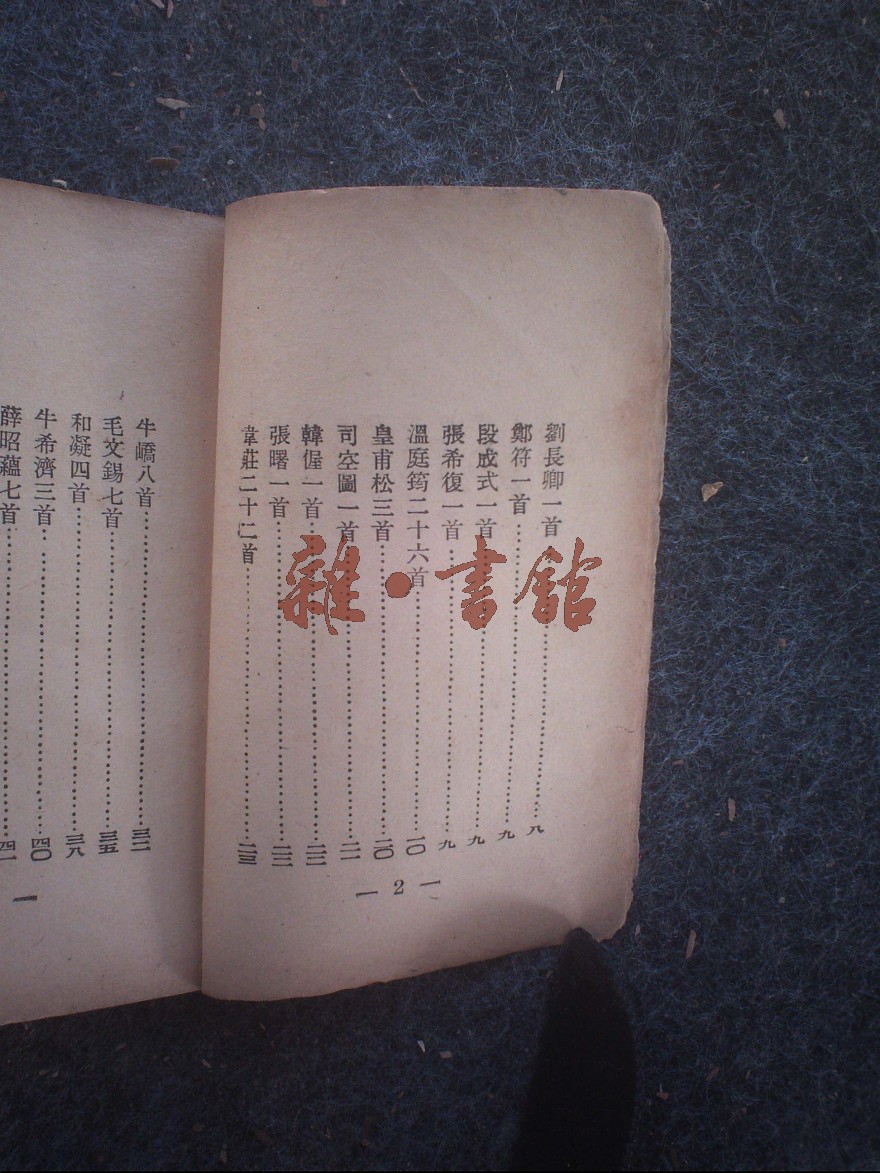 劉長卿一首……………………八
鄭符一首……………………九
段成式一首……………………九
張希復一首……………………九
溫庭筠二十六首……………………一〇
皇甫松三首……………………二〇
司空圖一首……………………二一
韓偓一首……………………二二
張曙一首……………………二二
韋莊二十二首……………………二三
— 2 —
牛嶠八首……………………三二
毛文錫七首……………………三五
和凝四首……………………三八
牛希濟三首……………………四〇
薛昭蘊七首……………………四一
雜·書館